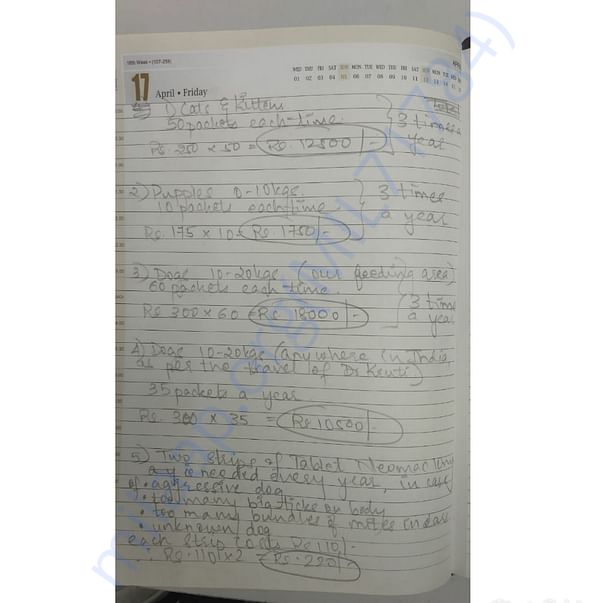 16th Week • (107-259)
WED THU FRI SAT SUN MON TUE WED THU FRI SAT SUN MON TUE WED THU FRI SAT SUN MON TUE W
01 02 03 04 05 06 07 08 09 10 11 12 13
17 April • Friday
1) Cats & Kittens
50 packets each time
Rs. 250 x 50 = Rs. 12500/-
3 times a year
2) Puppies 0-10kgs.
10 packets each time
Rs. 175 x 10 = Rs. 1750/-
3 times a year
3) Dogs 10-20kgs. (our feeding area)
60 packets each time.
Rs 300 x 60 = Rs 18000/-
3 times a year
4) Dogs 10-20kgs (anywhere in India,
as per the travel of Dr Kruti)
35 packets a year
Rs. 300 x 35 = Rs 10500/-
5) Two strips of Tablet Neomec
needed every year, in case
of • aggressive dog
• too many big ticks on body
• too many bundles of mites in ears
• unknown dog
each strip costs Rs 110/-
∴ Rs. 110 x 2 = Rs. 220/-
milaap.org(MIL717784)